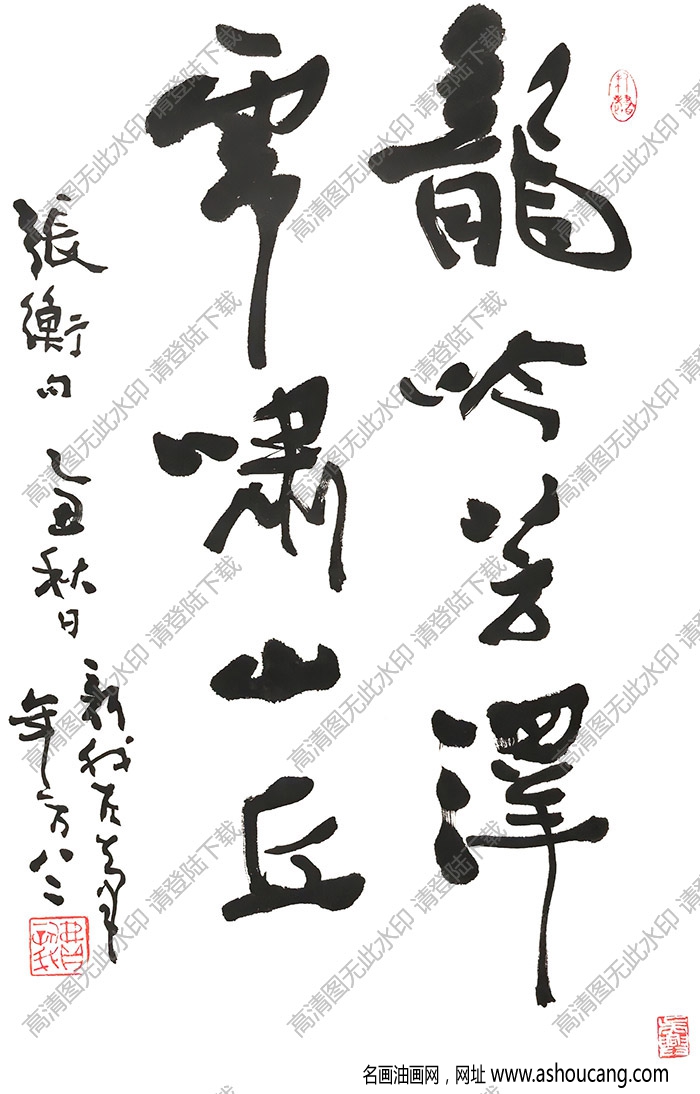 龍吟芳澤
虎嘯山丘
張衡句 乙丑秋日 新我左筆
年方八二
高清图无此水印 请登陆下载
名画油画网，网址 www.ashoucang.com